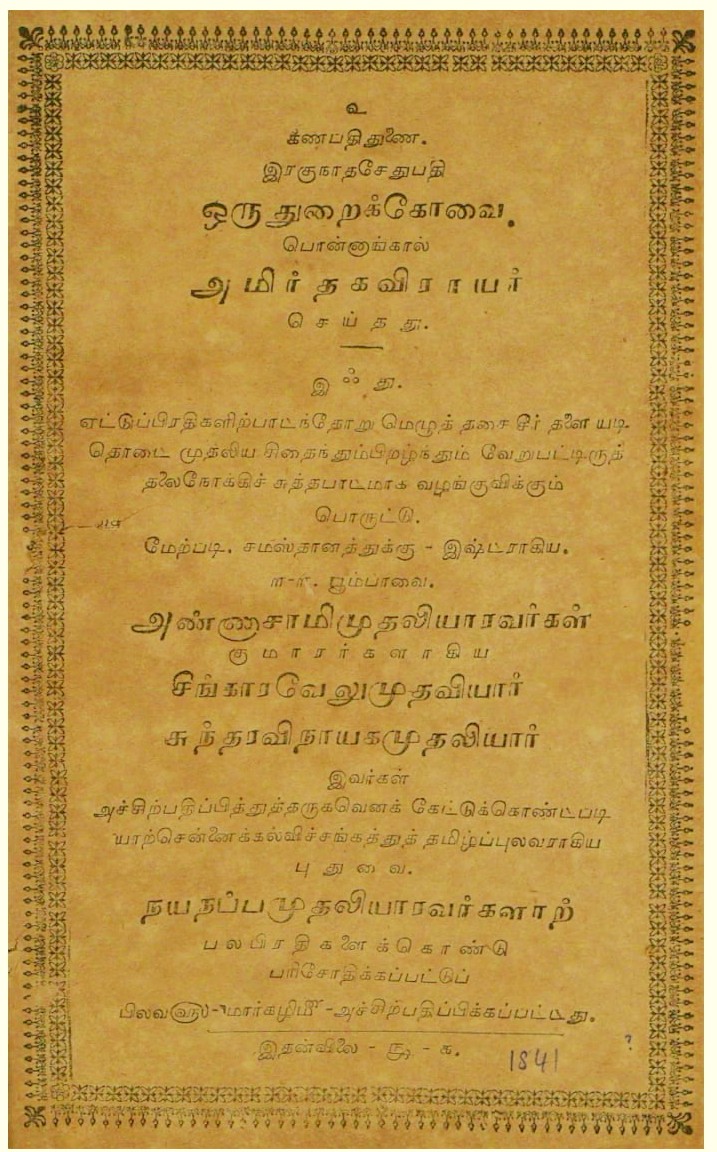 உ
கணபதிதுணை.
இரகுநாதசேதுபதி
ஒருதுறைக்கோவை.
பொன்னாங்கால்
அமிர்தகவிராயர்
செய்தது.
இஃது.
ஏட்டுப்பிரதிகளிற்பாடந்தோறு மெழுத் தசை சீர் தளை யடி
தொடை முதலிய சிதைந்தும்பிறழ்ந்தும் வேறுபட்டிருத்
தலைநோக்கிச் சுத்தபாடமாக வழங்குவிக்கும்
பொருட்டு.
மேற்படி. சமஸ்தானத்துக்கு - இஷ்டராகிய.
பூம்பாவை.
அண்ணாசாமிமுதலியாரவர்கள்
குமாரர்களாகிய
சிங்காரவேலுமுதலியார்
சுந்தரவிநாயகமுதலியார்
இவர்கள்
அச்சிற்பதிப்பித்துத்தருகவெனக் கேட்டுக்கொண்டபடி
யாற்சென்னைக்கல்விச்சங்கத்துத் தமிழ்ப்புலவராகிய
புதுவை.
நயநப்பமுதலியாரவர்களாற்
பலபிரதிகளைக்கொண்டு
பரிசோதிக்கப்பட்டுப்
பிலவ௵-மார்கழி௴-அச்சிற்பதிப்பிக்கப்பட்டது.
இதன்விலை - ரூ - க.
1841 ?